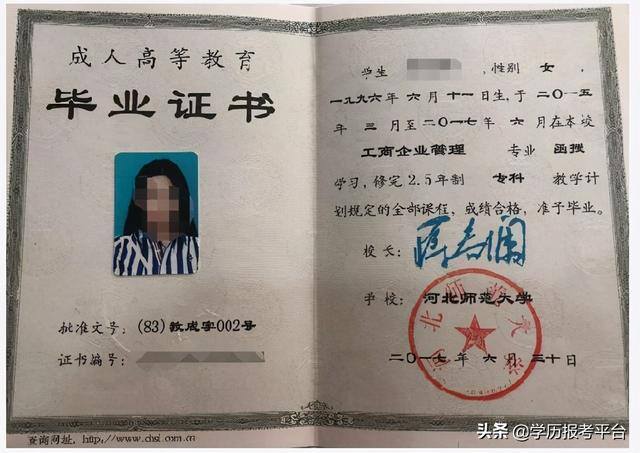 成人高等教育
毕业证书
批准文号：(83)教成字002号
证书编号：
查询网址：http://www.chsi.com.cn
学生 ，性别 女，
一九九六年 六月 十一日生，于二〇一五
年 三 月至二〇一七年 六月在本校
工商企业管理 专业 函授
学习，修完 2.5 年制 专科 教学计
划规定的全部课程，成绩合格，准予毕业。
校 长：
学 校：河北师范大学
二〇一七年 六 月 三十日
头条 @学历报考平台